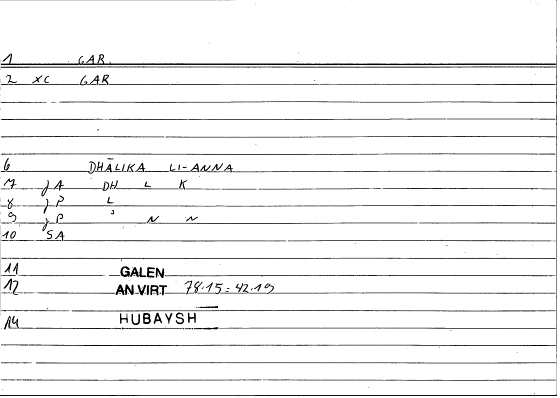 1 GAR.
2 XC GAR
6 DHĀLIKA LI-ANNA
7 JA DH L K
8 JP L
9 JP ʾ N N
10 SA
11 GALEN
12 AN VIRT 78.15 = 42.19
14 HUBAYSH